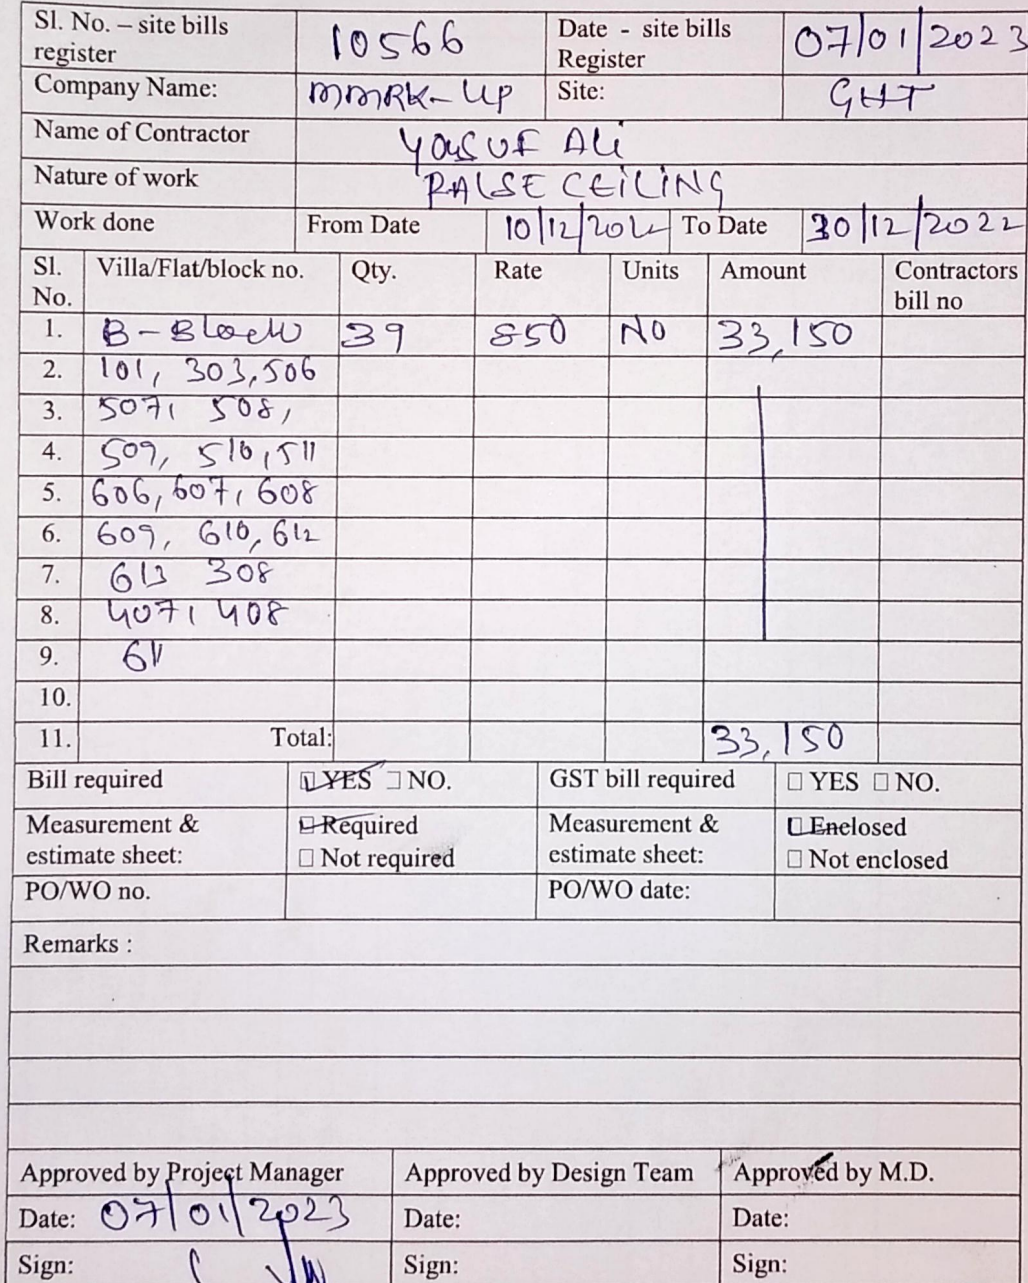 Sl. No. – site bills register 10566 Date - site bills Register 07/01/2023
Company Name: MMRK-UP Site: GHT
Name of Contractor Yousuf Ali
Nature of work FALSE CEILING
Work done From Date 10/12/2022 To Date 30/12/2022
Sl. No. Villa/Flat/block no. Qty. Rate Units Amount Contractors bill no
1. B-Block 39 850 No 33,150
2. 101, 303, 506
3. 507, 508,
4. 509, 510, 511
5. 606, 607, 608
6. 609, 610, 612
7. 613 308
8. 407, 408
9. 611
10.
11. Total: 33,150
Bill required YES NO. GST bill required YES NO.
Measurement & estimate sheet: Required Not required Measurement & estimate sheet: Enclosed Not enclosed
PO/WO no. PO/WO date:
Remarks :
Approved by Project Manager Approved by Design Team Approved by M.D.
Date: 07/01/2023 Date: Date:
Sign: Sign: Sign: